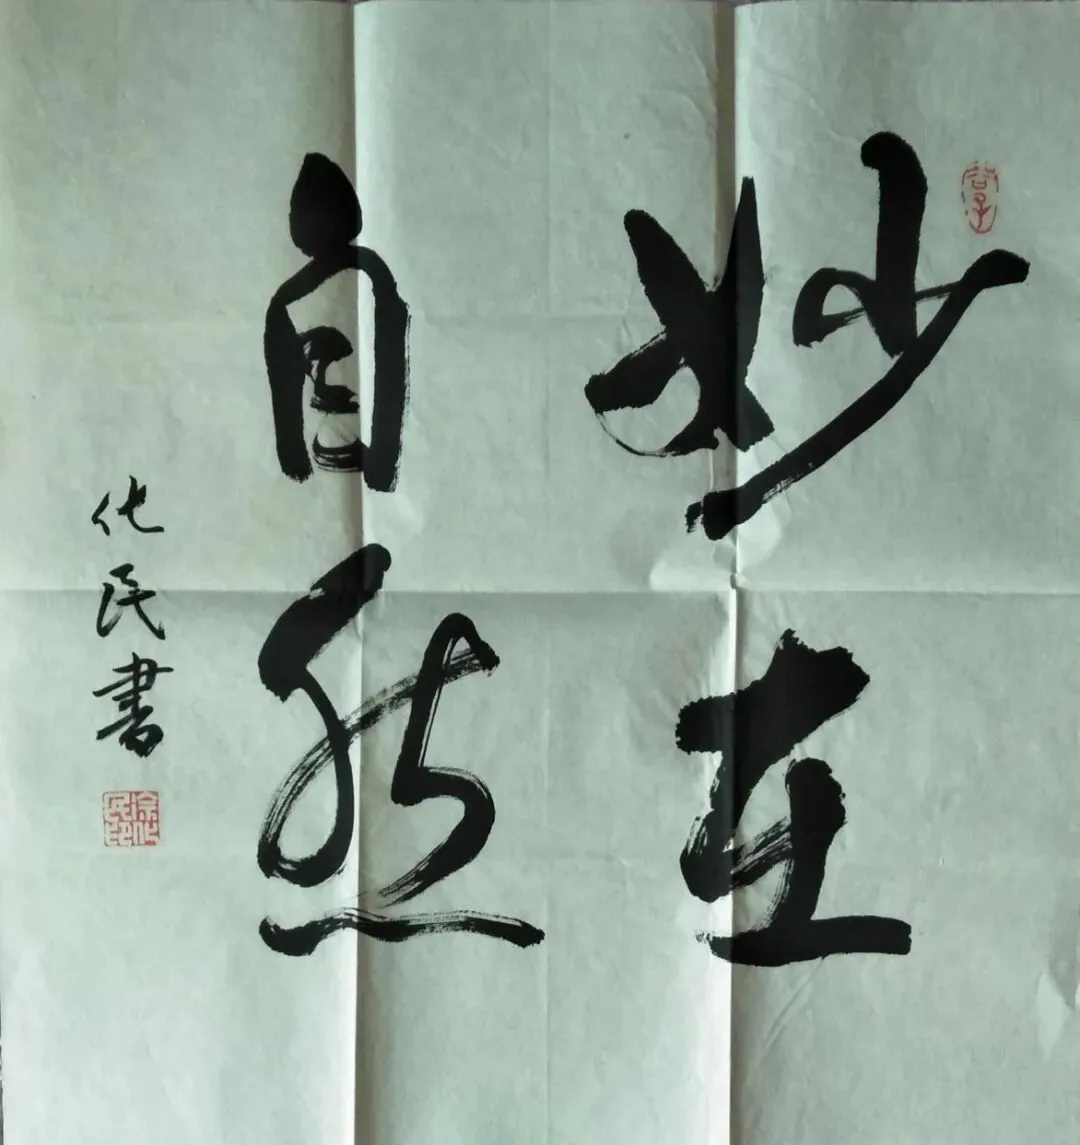 妙在
自然
化民書